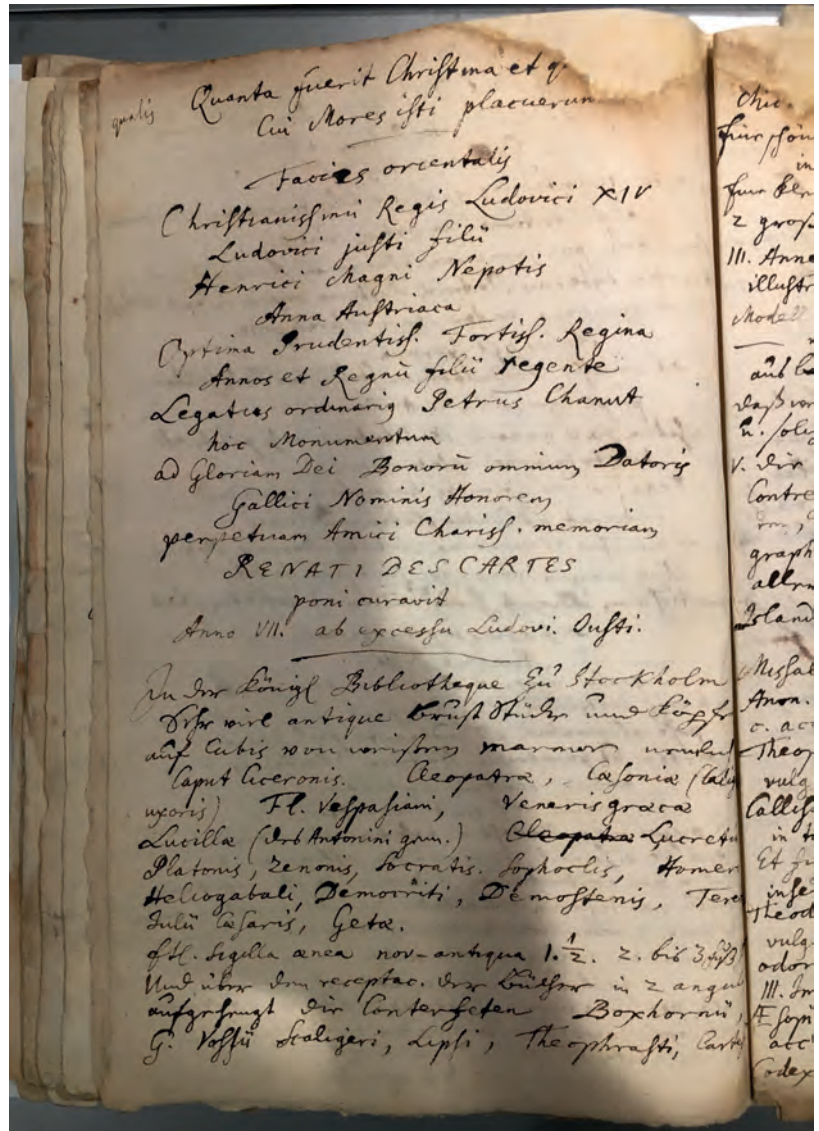 qualis Quanta fuerit Christina et q.
Cui Mores isti placuerun
Facies orientalis
Christianissimi Regis Ludovici XIV
Ludovici justi filii
Henrici Magni Nepotis
Anna Austriaca
Optima Prudentiss. Fortiss. Regina
Annos et Regnū filii regente
Legatus ordinariꝯ Petrus Chanut
hoc Monumentum
ad Gloriam Dei Bonorū omnium Datoris
Gallici Nominis Honorem
perpetuam Amici Chariss. memoriam
RENATI DESCARTES
poni curavit
Anno VII. ab excessu Ludovi. Justi.
In der Königl Bibliotheque zu Stockholm
Sehr viel antique Brust Stücke und Köpfe
auf Cubis von weißem marmor
Caput Ciceronis. Cleopatræ, Cæsoniæ (Calig
uxoris) Fl. Vespasiani, Veneris græcæ
Lucillæ (des Antonini gem.) Cleopatra Lucretiæ
Platonis, Zenonis, Socratis. Sophoclis, Homer
Heliogabali, Democriti, Demostenis, Tere
Julii Cæsaris, Getæ.
etl. Sigilla ænea nov-antiqua 1.½. 2. bis 3 fuß
Und über dem receptac. der Bücher in 2 angul
aufgehengt die Conterfeten Boxhornii,
G. Vossii Scaligeri, Lipsi, Theophrasti, Cartes
Chic.
in
2 groß
III. Anne
illustr
Modell
aus
daß
u. solch
V. die
Contre
graph
allem
Island
Missal
Anon.
c. acc
Theop
vulg
Callis
in
Et
inse
Theod
vulg
odor
III. Im
Æsopi
acc
Codex